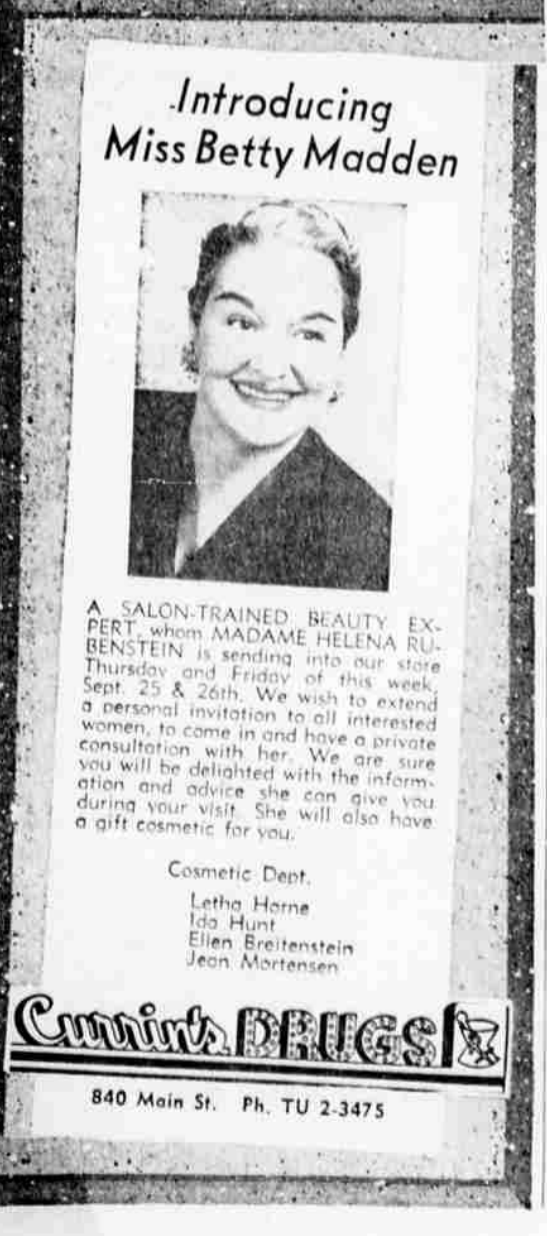 Introducing
Miss Betty Madden
A SALON-TRAINED BEAUTY EX-
PERT, whom MADAME HELENA RU-
BENSTEIN is sending into our store
Thursday and Friday of this week,
Sept. 25 & 26th. We wish to extend
a personal invitation to all interested
women, to come in and have a private
consultation with her. We are sure
you will be delighted with the inform-
ation and advice she can give you
during your visit. She will also have
a gift cosmetic for you.
Cosmetic Dept.
Letha Horne
Ida Hunt
Ellen Breitenstein
Jean Mortensen
Currin's DRUGS
840 Main St. Ph. TU 2-3475